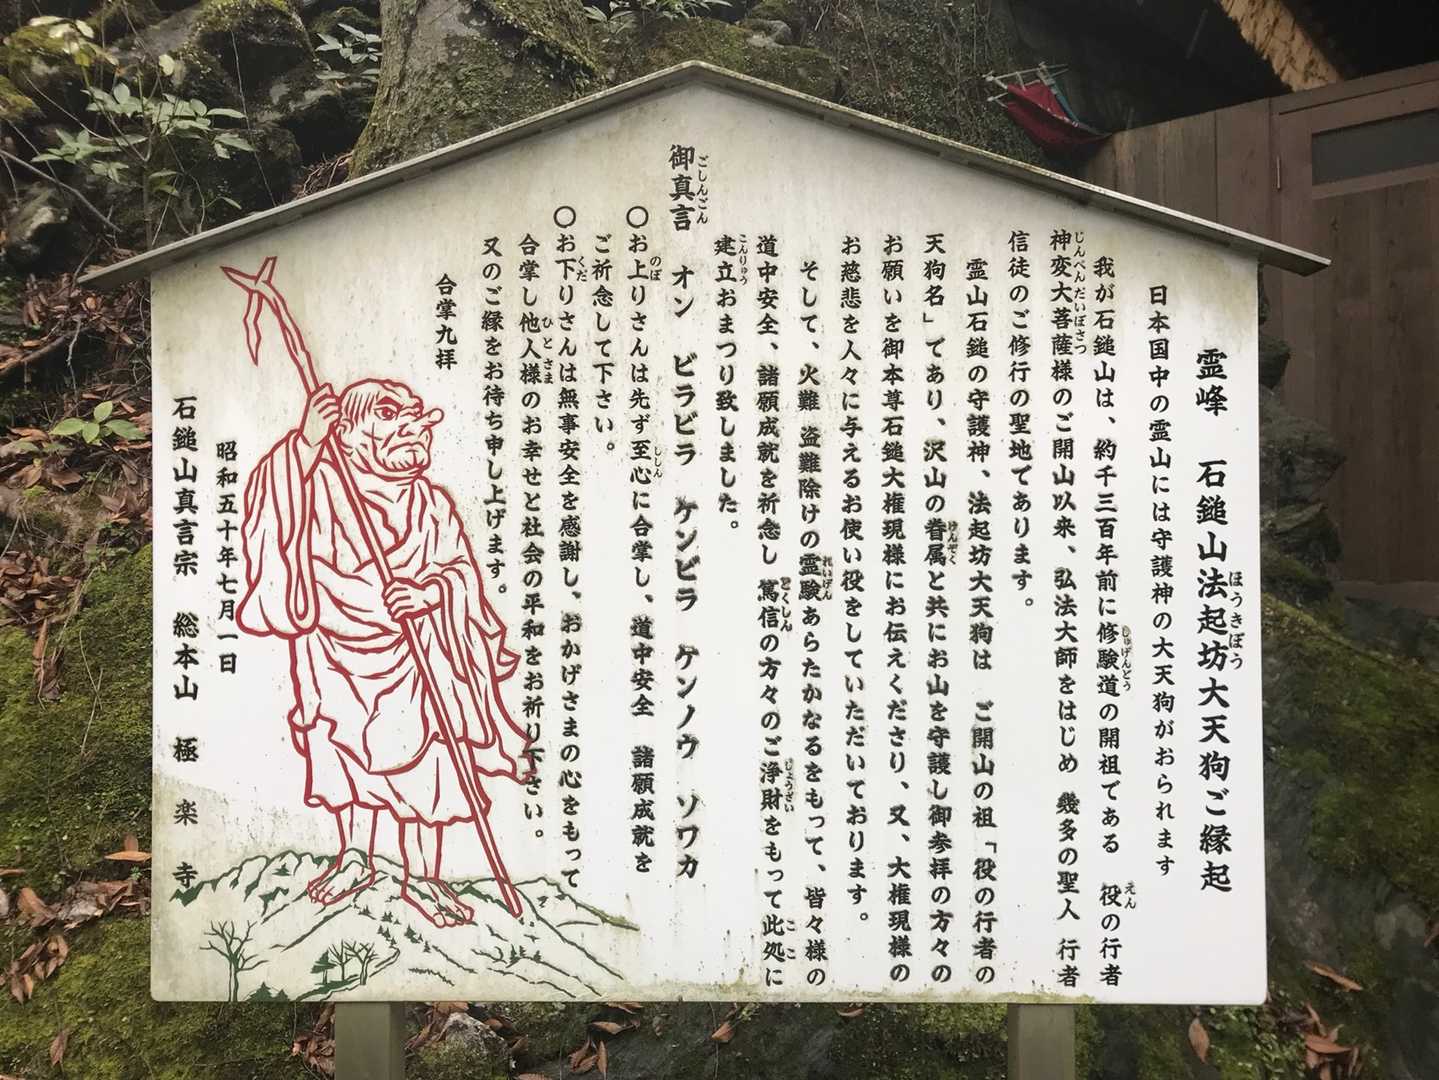 霊峰　石鎚山法起坊大天狗ご縁起
日本国中の霊山には守護神の大天狗がおられます
我が石鎚山は、約千三百年前に修験道の開祖である　役の行者
神変大菩薩様のご開山以来、弘法大師をはじめ　幾多の聖人　行者
信徒のご修行の聖地であります。
霊山石鎚の守護神、法起坊大天狗は　ご開山の祖「役の行者の
天狗名」であり、沢山の眷属と共にお山を守護し御参拝の方々の
お願いを御本尊石鎚大権現様にお伝えくださり、又、大権現様の
お慈悲を人々に与えるお使い役をしていただいております。
そして、火難　盗難除けの霊験あらたかなるをもって、皆々様の
道中安全、諸願成就を祈念し　篤信の方々のご浄財をもって此処に
建立おまつり致しました。
御真言　オン　ビラビラ　ケンビラ　ケンノウ　ソワカ
〇お上りさんは先ず至心に合掌し、道中安全　諸願成就を
ご祈念して下さい。
〇お下りさんは無事安全を感謝し、おかげさまの心をもって
合掌し他人様のお幸せと社会の平和をお祈り下さい。
又のご縁をお待ち申し上げます。
合掌九拝
昭和五十年七月一日
石鎚山真言宗　総本山　極楽寺